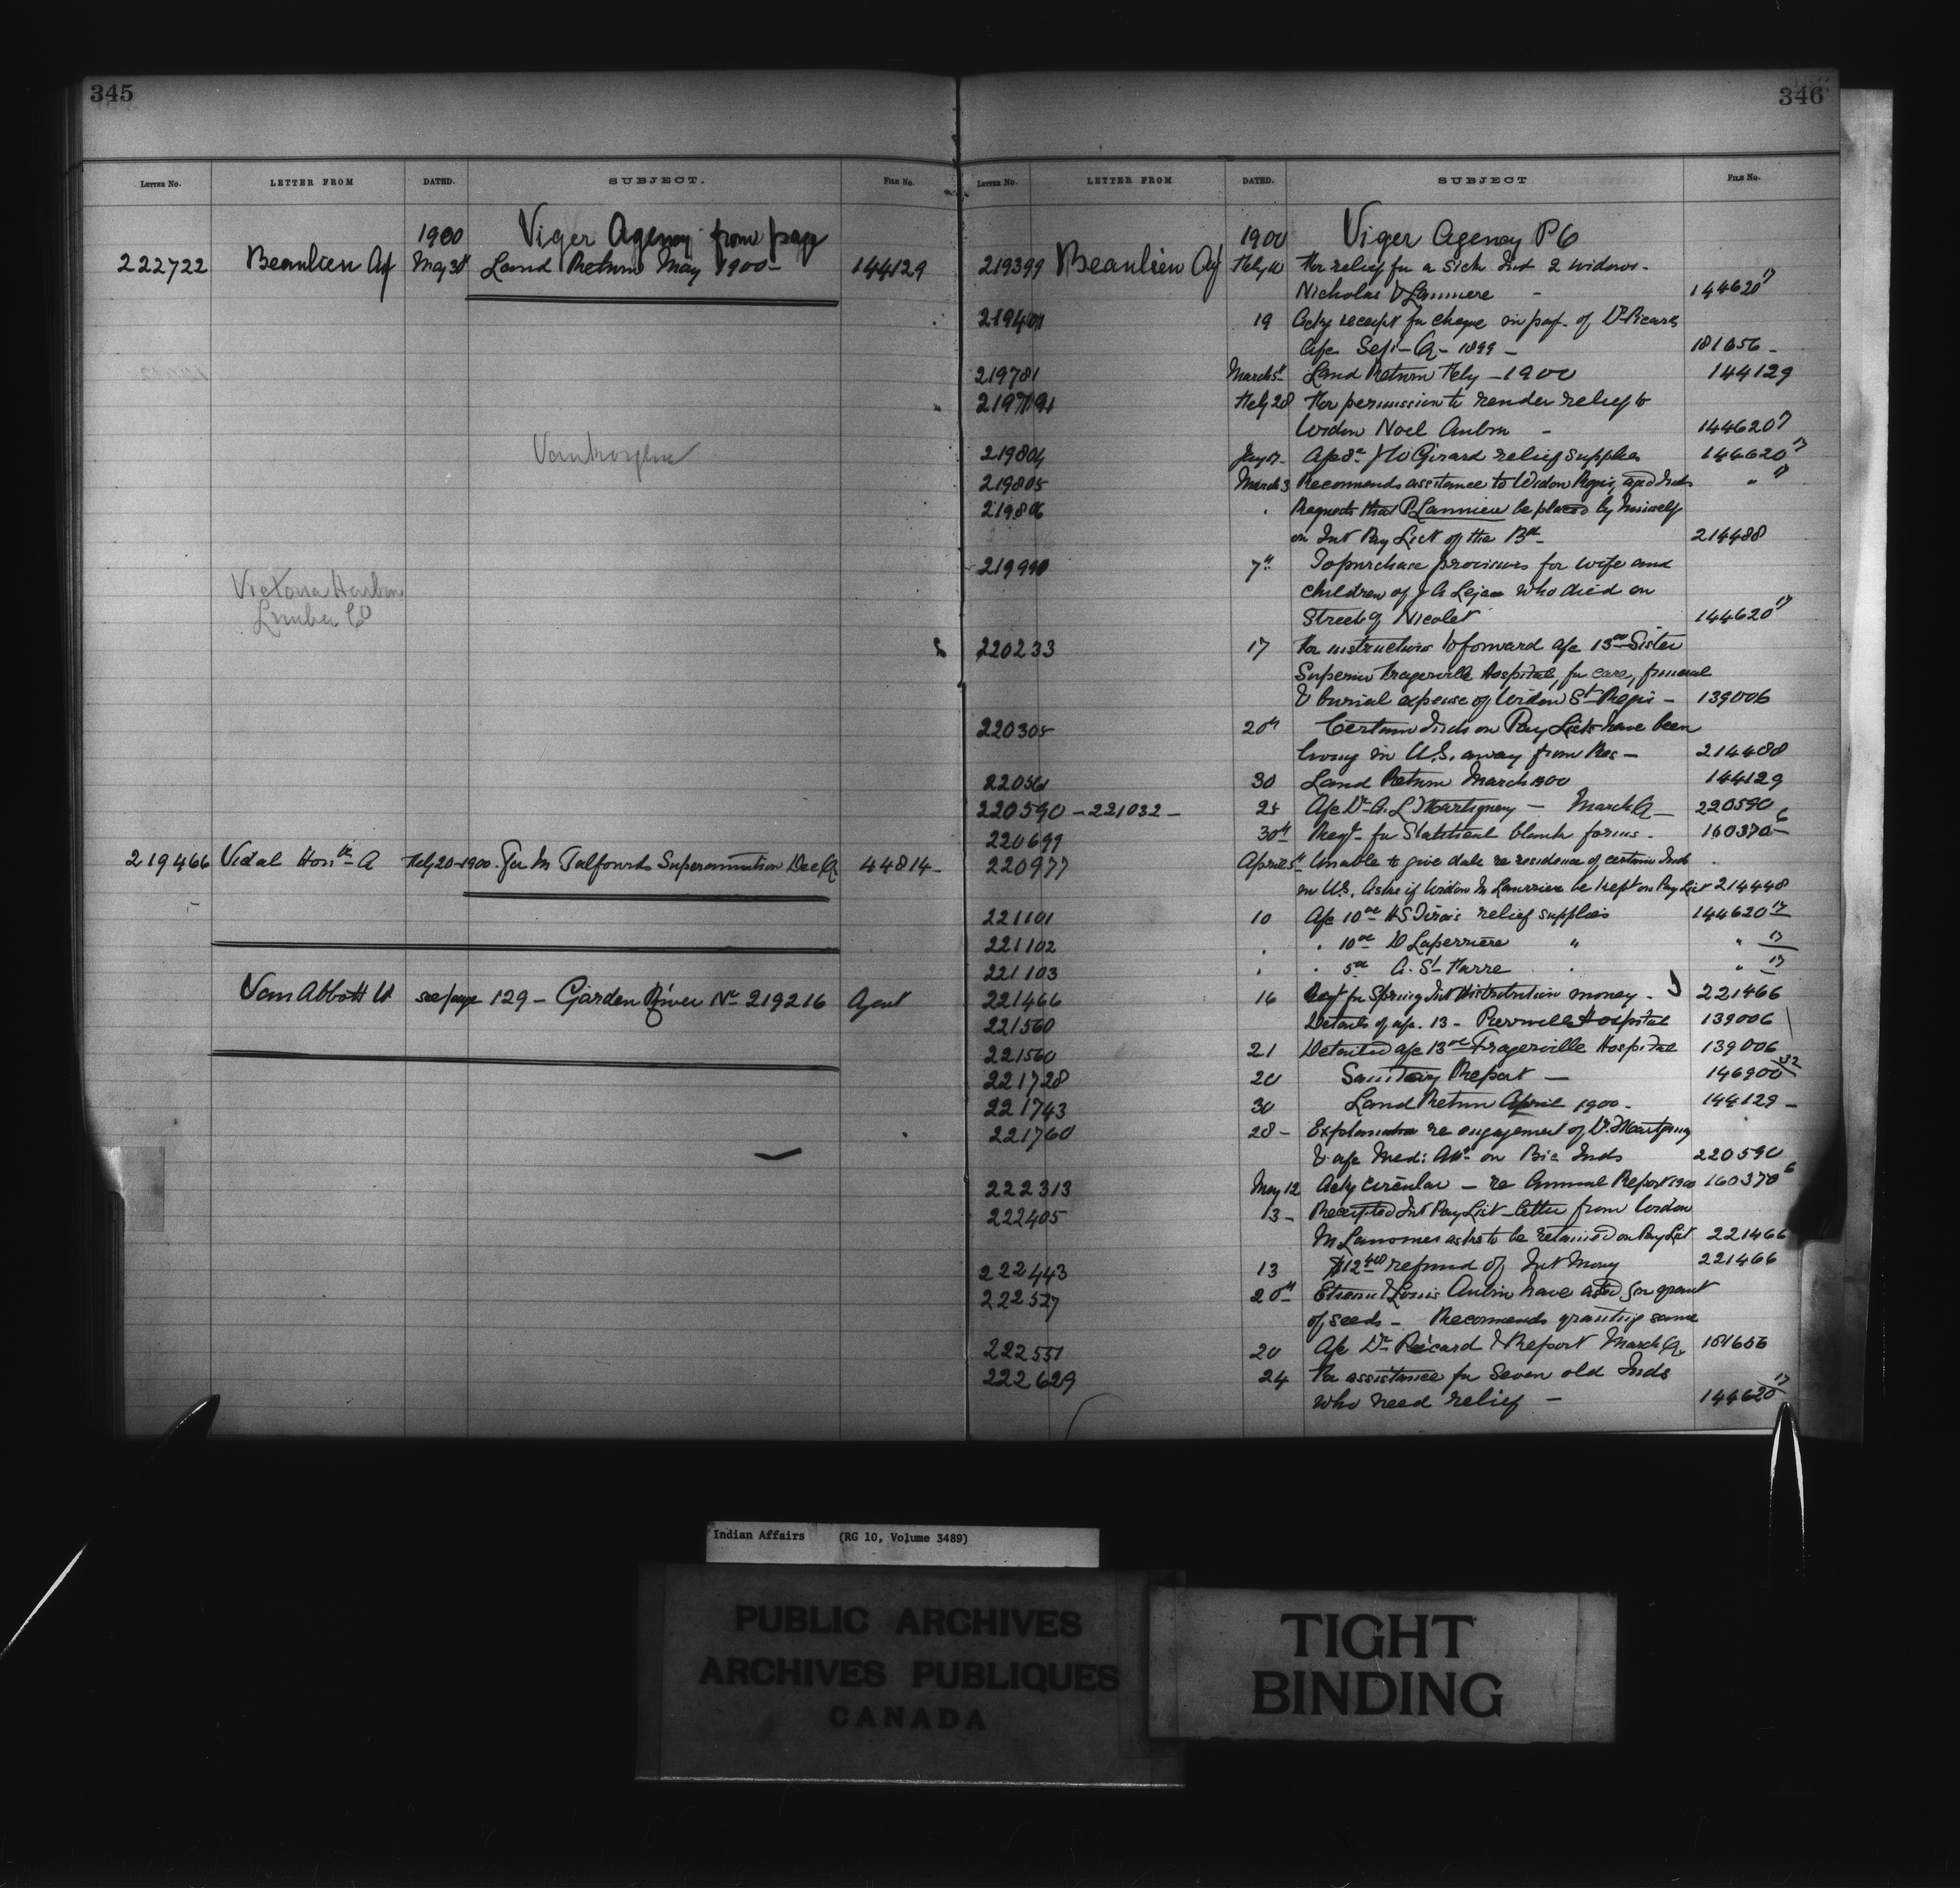 345
LETTER NO. LETTER FROM DATED. SUBJECT. FILE NO.
1900 Viger Agency from page
222722 Beaulieu Ag May 30th Land Return May 1900 - 144129
Victoria Harbor
Lumber Co
219466 Vidal Hon A Feby 20-1900 For M Talfourds Superannuation Dec Q 44814 -
Van Abbott W see page 129 - Garden River No 219216 Agent
346
LETTER NO. LETTER FROM DATED. SUBJECT FILE NO.
1900 Viger Agency P 6
219399 Beaulieu Ag Feby For relief for a sick Ind 2 widows -
Nicholas & Lanniere - 144620 17
19 Ackg receipt for cheque in pay. of Dr Picards
a/c Sept - Q - 1899 - 181656 -
219781 March 5th Land Return Feby - 1900 144129
Feby 28 For permission to render relief to
Widow Noel Aubin - 144620 17
219804 Girard relief supplies 144620 17
219805 March 3 Recommends assistance to Widow Regis, aged Inds " 17
219806 . Requests that P Lanniere be placed by himself
on Int Pay List of the Bd - 214488
219990 7th To purchase provisions for wife and
children of J A Lejan who died on
Street of Nicolet 144620 17
220233 17 For instructions to forward a/c Sister
Superior Fragerville Hospital, for care, funeral
& burial expense of Widow St Regis - 139006
220305 20th Certain Inds on Pay Lists have been
living in U.S. away from Res - 214488
30 Land Return March 1900 144129
220590 - 221032 - 25 A/c Dr A. L. Martigney - March Q - 220590
220699 30th Reqt for Statistical blank forms - 160370 6
220977 April 5th Unable to give date re residence of certain Inds
in U.S. Asks if Widow M Lanniere be kept on Pay List 214448
221101 10 A/c 10 H S relief supplies 144620 17
221102 . . 10 D Laperriere " " 17
221103 . . 5 A. St Pierre . " 17
221466 16 Reqt for Spring Int Distribution money - 221466
221560 Details of a/c. 13 - Hospital 139006
221560 21 Detailed a/c 13 Fragerville Hospital 139006
221728 20 Sanitary Report - 146900 32
221743 30 Land Return April 1900 - 144129 -
221760 28 - Explanation re engagement of Dr. Martigney
& a/c Med: Att on Bic Inds 220590
222313 May 12 Ackg circular - re Annual Report 1900 160370 6
222405 13 - Receipted Int Pay List - letter from Widow
M asks to be retained on Pay List 221466
222443 13 $12 refund of Int Money 221466
222527 20th Etienne & Louis Aubin have asked for grant
of seeds - Recommends granting same
222551 20 A/c Dr Picard & Report March Q. 181656
222629 24 For assistance for seven old Inds
who need relief - 144620 17
Indian Affairs (RG 10, Volume 3489)
PUBLIC ARCHIVES
ARCHIVES PUBLIQUES
CANADA
TIGHT
BINDING